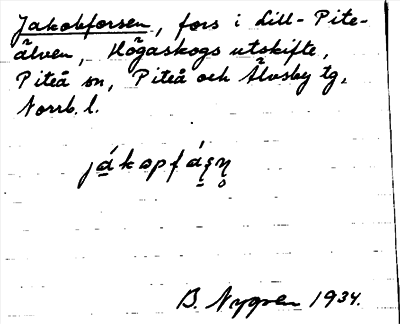 Jakobforsen, fors i Lill-Pite-
älven, Högaskogs utskifte,
Piteå sn, Piteå och Älvsby tg,
Norrb. l.
B. Nygren 1934.